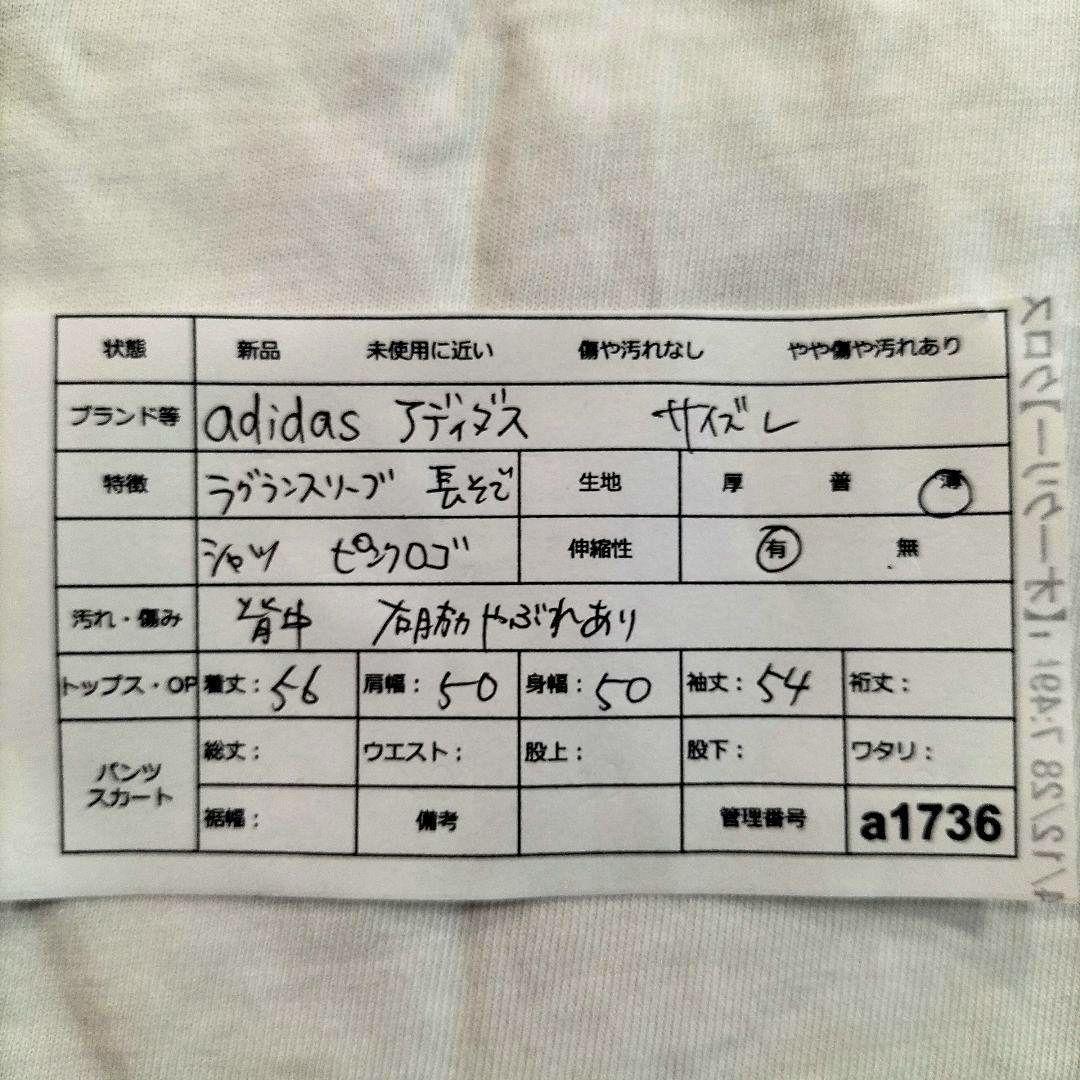 状態 新品 未使用に近い 傷や汚れなし やや傷や汚れあり
ブランド等 adidas アディダス サイズ L
特徴 ラグランスリーブ 長そで 生地 厚 普 薄
シャツ ピンクロゴ 伸縮性 有 無
汚れ・傷み 背中 右脇 やぶれあり
トップス・OP 着丈：56 肩幅：50 身幅：50 袖丈：54 裄丈：
パンツ スカート 総丈： ウエスト： 股上： 股下： ワタリ：
裾幅： 備考 管理番号 a1736